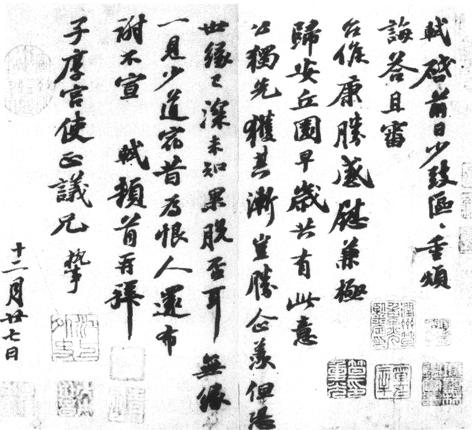 軾啓前日少致區〻重煩
誨答且審
台候康勝感慰兼極
歸安丘園早歲共有此意
公獨先獲其漸豈勝企羨但恐
世緣已深未知果脫否耳無緣
一見少道宿昔為恨人還布
謝不宣 軾頓首再拜
子厚宮使正議兄 執事
十二月廿七日